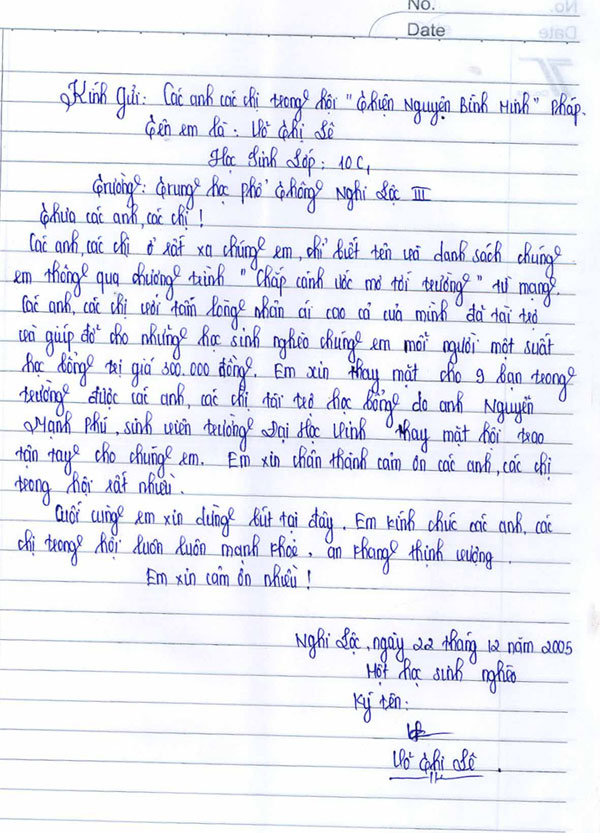 No.
Date
Kính gửi: Các anh các chị trong hội "Thiện Nguyện Bình Minh" Pháp.
Tên em là: Võ Thị Lê
Học Sinh Lớp: 10C1
Trường: Trung học phổ thông Nghi Lộc III
Thưa các anh, các chị!
Các anh, các chị ở rất xa chúng em, chỉ biết tên và danh sách chúng
em thông qua chương trình "Chấp cánh ước mơ tới trường" từ mạng.
Các anh, các chị với tấm lòng nhân ái cao cả của mình đã tài trợ
và giúp đỡ cho những học sinh nghèo chúng em mỗi người một suất
học bổng trị giá 300.000 đồng. Em xin thay mặt cho 9 bạn trong
trường được các anh, các chị tài trợ học bổng do anh Nguyễn
Mạnh Phú, sinh viên trường Đại Học Vinh thay mặt hội trao
tận tay cho chúng em. Em xin chân thành cảm ơn các anh, các chị
trong hội rất nhiều.
Cuối cùng em xin dừng bút tại đây. Em kính chúc các anh, các
chị trong hội luôn luôn mạnh khoẻ, an khang thịnh vượng.
Em xin cảm ơn nhiều!
Nghi Lộc, ngày 22 tháng 12 năm 2005
Một học sinh nghèo
Ký tên:
Võ Thị Lê